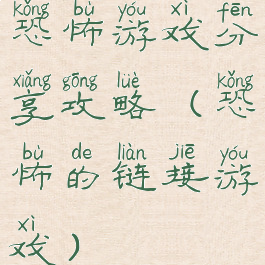 kǒng bù yóu xì fēn
恐怖游戏分
xiǎng gōng lüè kǒng
享攻略（恐
bù de liàn jiē yóu
怖的链接游
xì
戏）